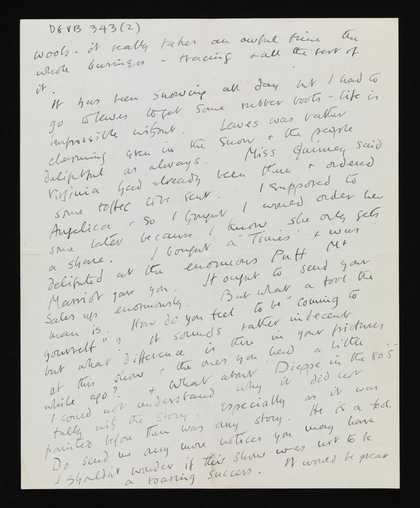 DEVB 343(2)
wools - it really takes an awful time the
whole business - tracing & all the rest of
it.
It has been snowing all day but I had to
go to Lewes to get some rubber boots - life is
impossible without. Lewes was rather
charming even in the snow & the people
delightful as always. Miss said
Virginia had already been there & ordered
some toffee to be sent. I supposed to
Angelica - So I thought I would order her
some later because I know she only gets
a share. I bought a "Times" & was
delighted at the enormous Puff Mr
Marriott gave you. It ought to send your
Sales up enormously. But what a fool the
man is. How do you feel to be "coming to
yourself"? It sounds rather indecent
but what difference is there in your pictures
at this show & the ones you had a little
while ago? & what about Dieppe in the 80's
I could not understand why it did not
tally with the story. especially as it was
painted before there was any story. He is a fool.
Do send me any more notices you may have
I shouldn't wonder if this show was not to be
a roaring success. It would be great